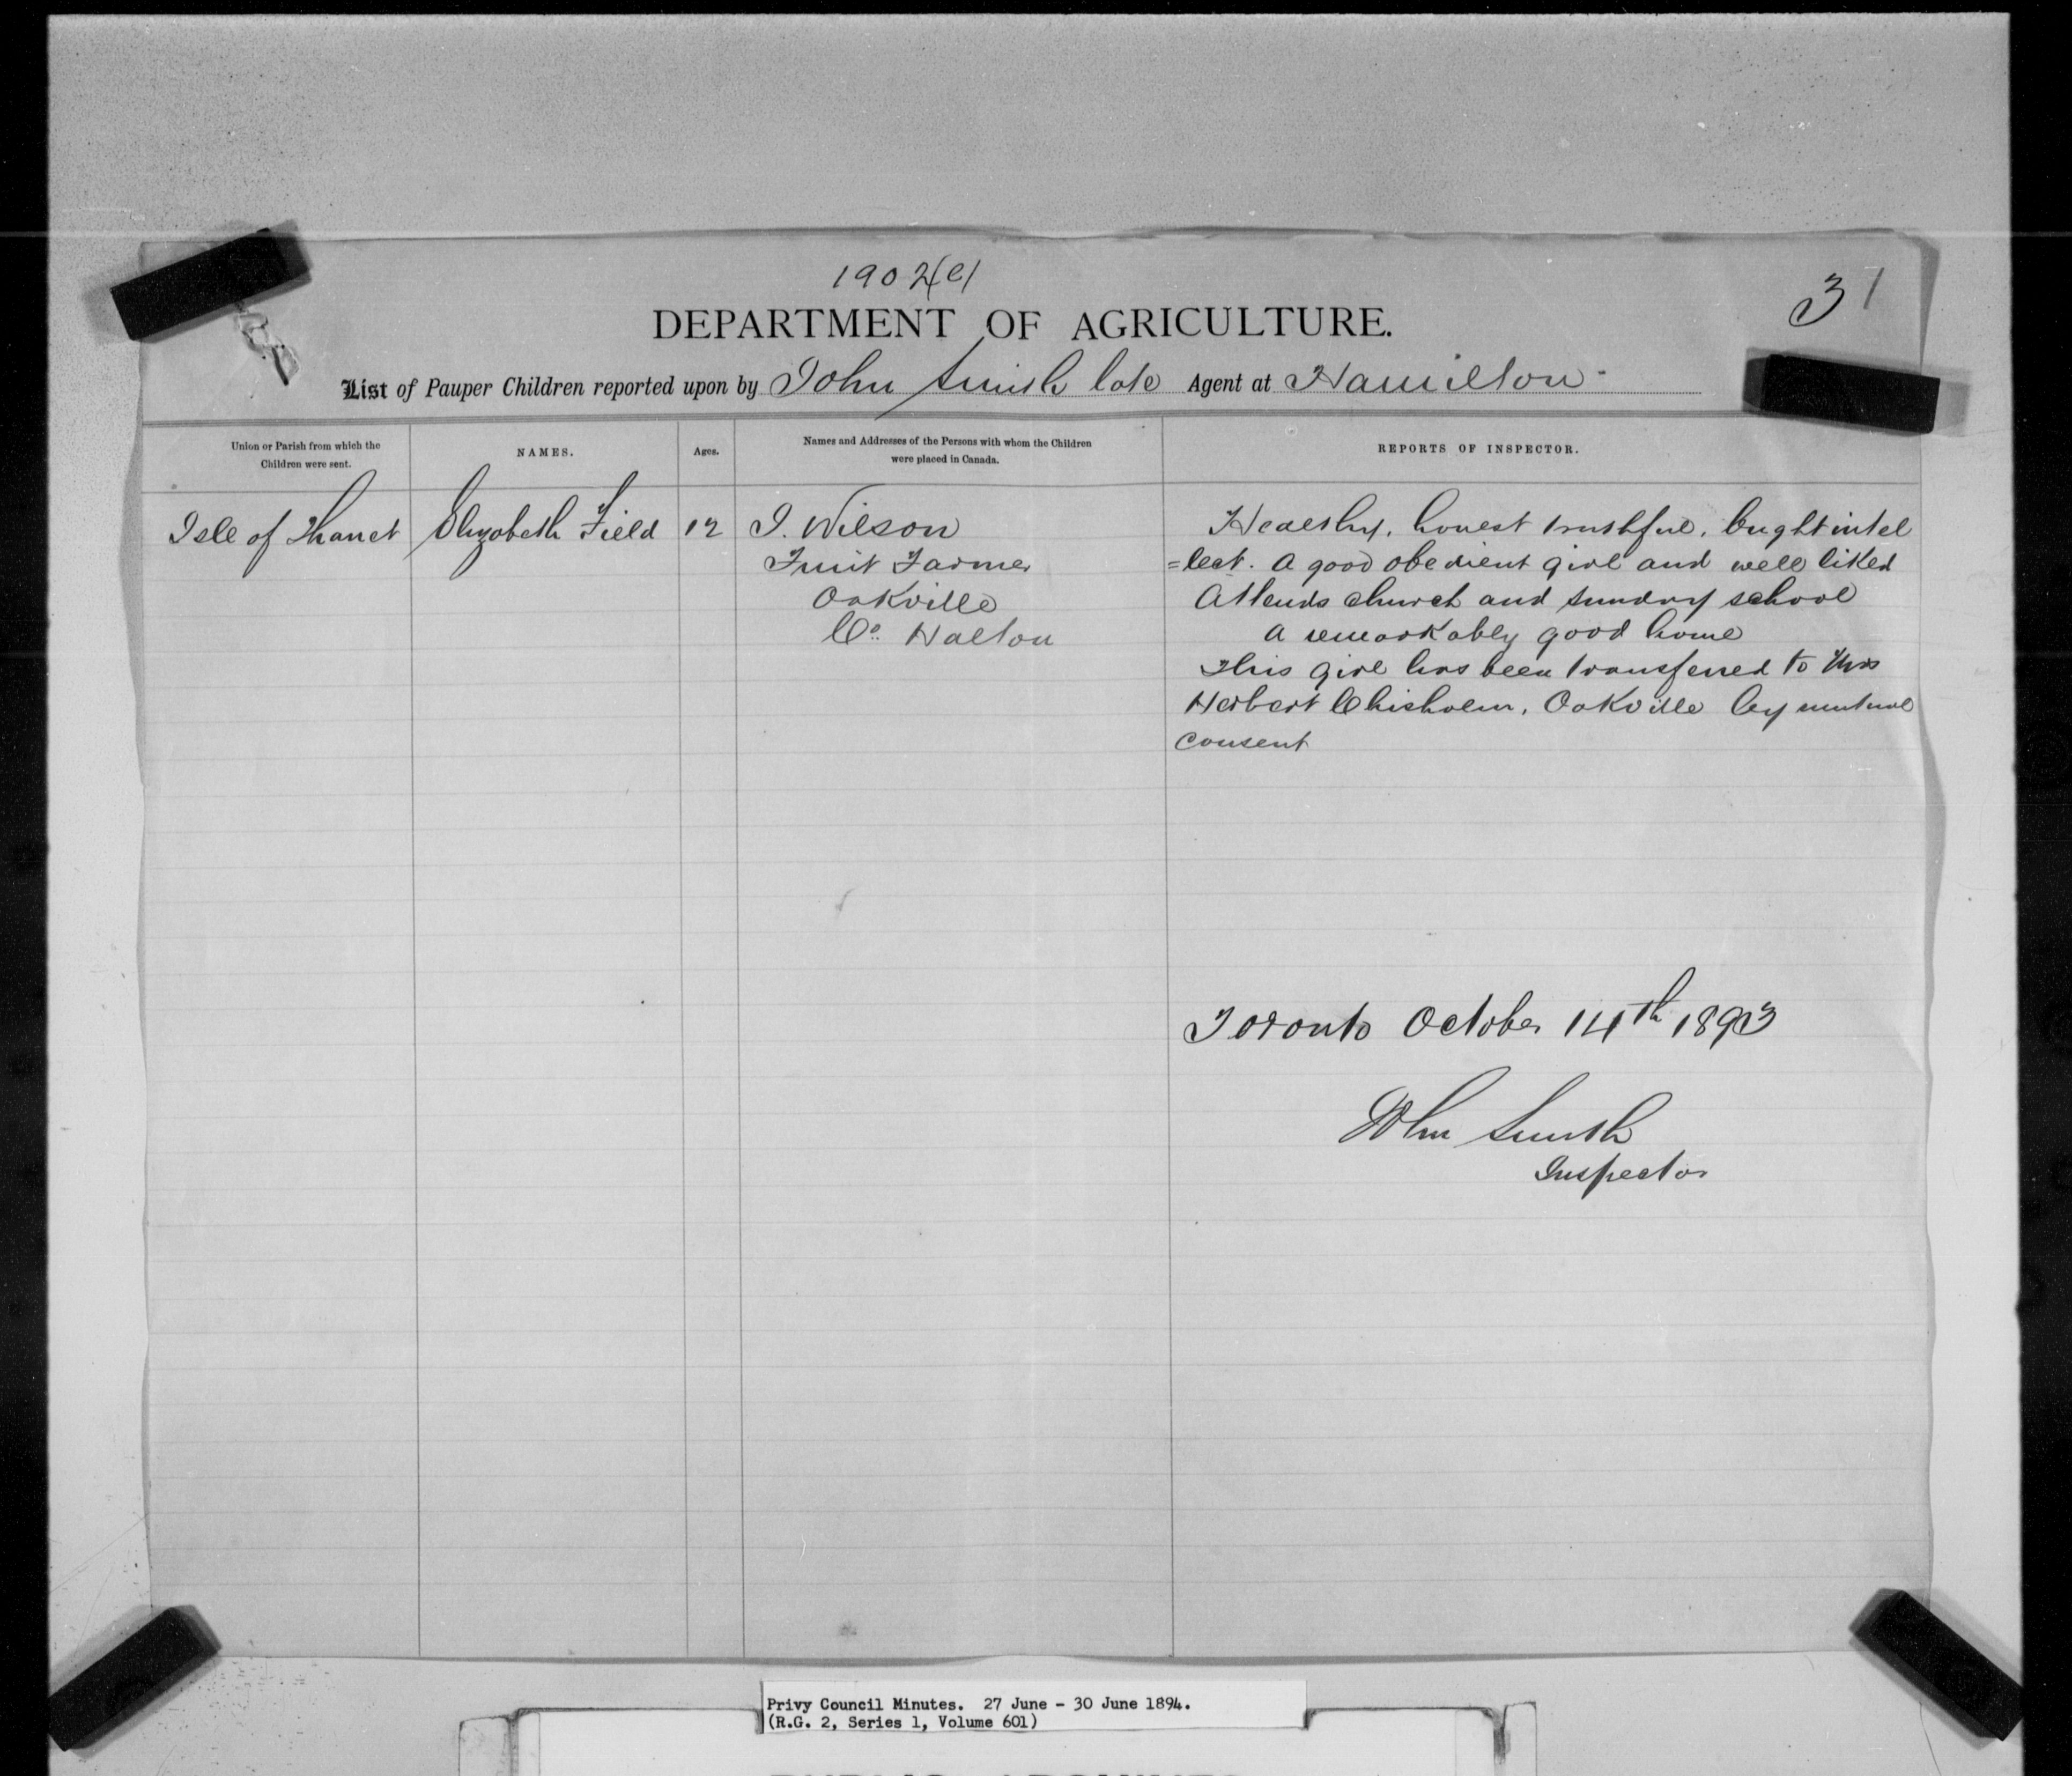 1902(e)
31
DEPARTMENT OF AGRICULTURE.
List of Pauper Children reported upon by John Smith late Agent at Hamilton
Union or Parish from which the
Children were sent.
NAMES.
Ages.
Names and Addresses of the Persons with whom the Children
were placed in Canada.
REPORTS OF INSPECTOR.
Isle of Thanet
Elizabeth Field
12
J. Wilson
Fruit Farmer
Oakville
Co. Halton
Healthy, honest truthful, bright intel
=lect. A good obedient girl and well liked
Attends church and sunday school
a remarkably good home
This girl has been transferred to Mrs
Herbert Chisholm, Oakville by mutual
consent
Toronto October 14th 1893
John Smith
Inspector
Privy Council Minutes. 27 June - 30 June 1894.
(R.G. 2, Series 1, Volume 601)